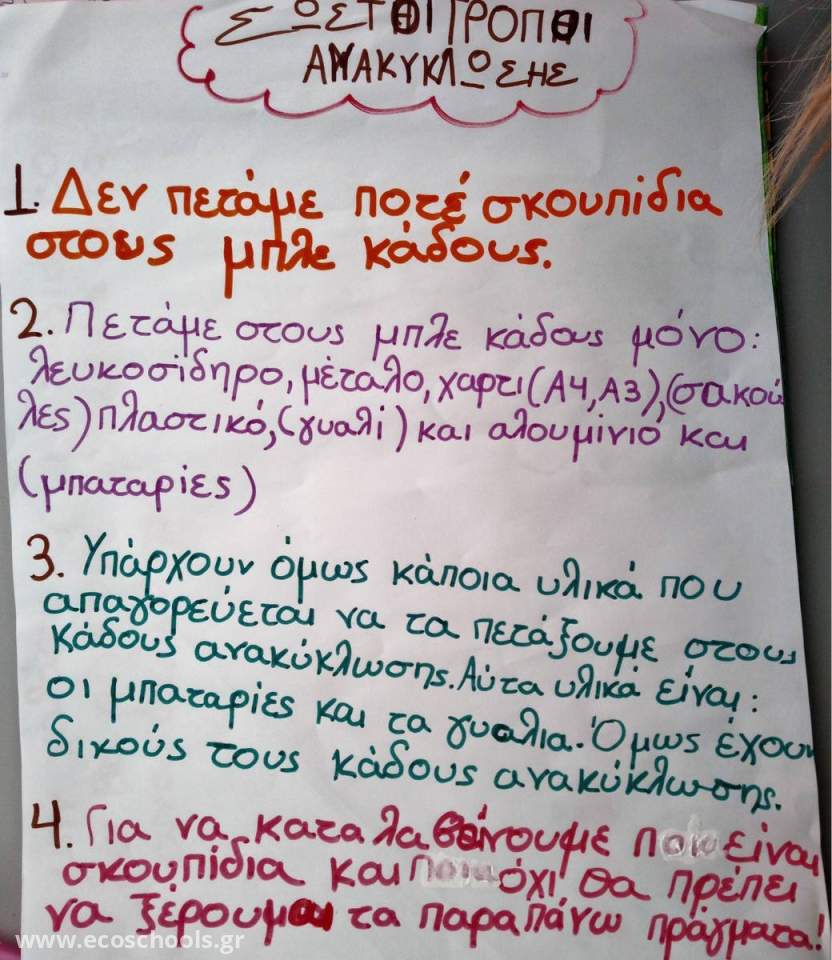 ΣΩΣΤΟΙ ΤΡΟΠΟΙ
ΑΝΑΚΥΚΛΩΣΗΣ
1. Δεν πετάμε ποτέ σκουπίδια
στους μπλε κάδους.
2. Πετάμε στους μπλε κάδους μόνο:
λευκοσίδηρο, μέταλο, χαρτί (Α4, Α3), (σακού
λες) πλαστικό, (γυαλί) και αλουμίνιο και
(μπαταρίες)
3. Υπάρχουν όμως κάποια υλικά που
απαγορεύεται να τα πετάξουμε στους
κάδους ανακύκλωσης. Αύτα υλικά είναι:
οι μπαταρίες και τα γυαλια. Όμως έχουν
δικούς τους κάδους ανακύκλωσης.
4. Για να καταλαβαίνουμε είναι
σκουπίδια και όχι θα πρέπει
να ξέρουμαι τα παραπάνω πράγματα!
www.ecoschools.gr